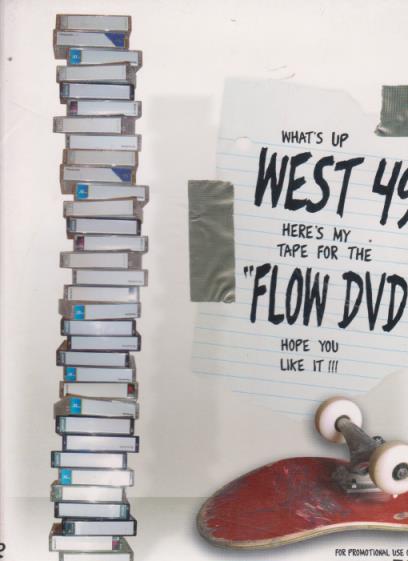 WHAT'S UP
WEST 49
HERE'S MY
TAPE FOR THE
"FLOW DVD
HOPE YOU
LIKE IT !!!
FOR PROMOTIONAL USE